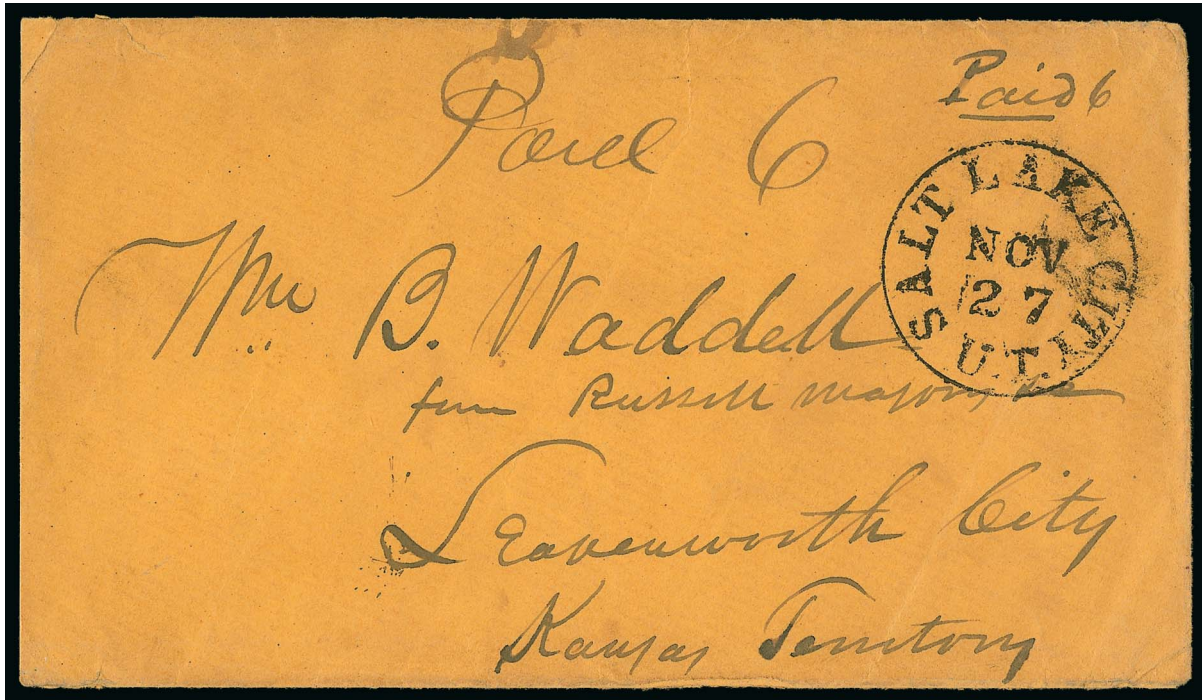 Paid 6
Paid 6
SALT LAKE CITY
NOV
27
U.T.
Wm B. Waddell
firm Russell Majors &c
Leavenworth City
Kansas Territory